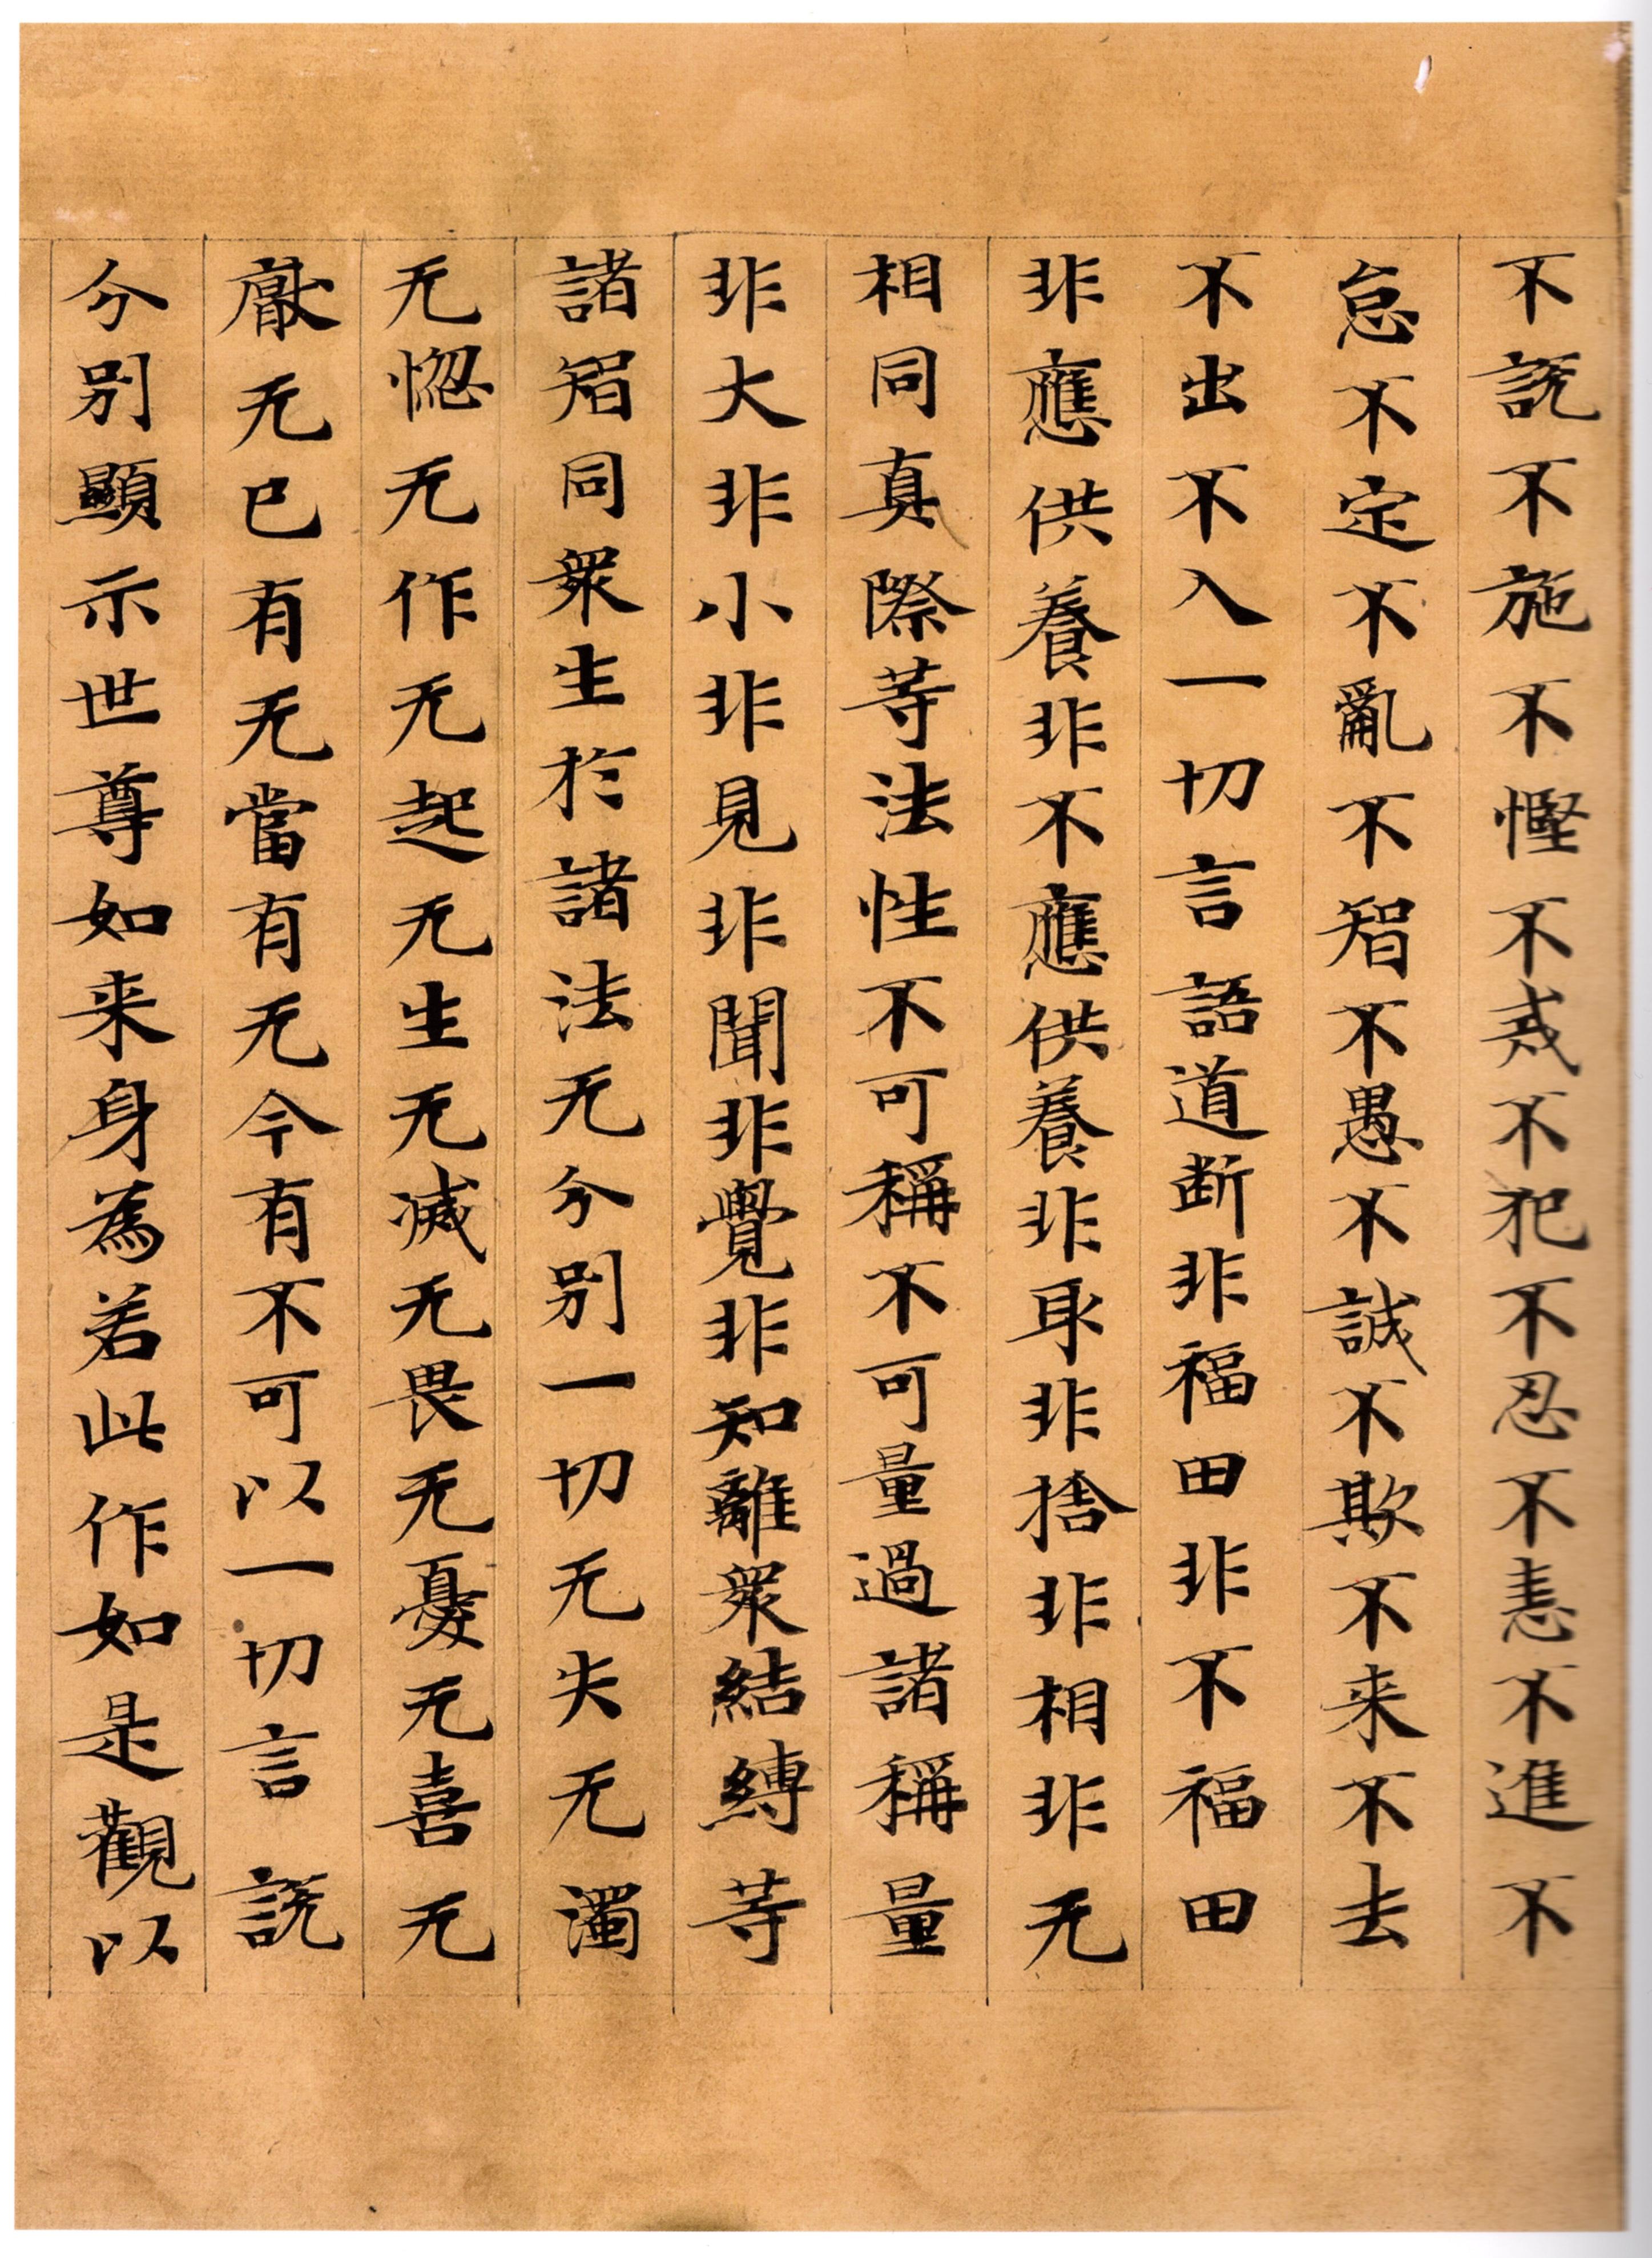 不說不施不慳不戒不犯不忍不恚不進不
怠不定不亂不智不愚不誠不欺不来不去
不出不入一切言語道断非福田非不福田
非應供養非不應供養非取非捨非相非无
相同真際等法性不可稱不可量過諸稱量
非大非小非見非聞非覺非知離衆結縛等
諸智同衆生於諸法无分别一切无失无濁
无惱无作无起无生无滅无畏无憂无喜无
猒无已有无當有无今有不可以一切言說
分别顯示世尊如来身為若此作如是觀以